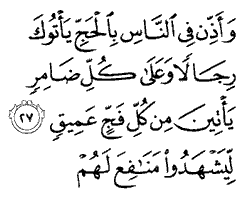 وَأَذِّن فِي ٱلنَّاسِ بِٱلْحَجِّ يَأْتُوكَ
رِجَالًا وَعَلَىٰ كُلِّ ضَامِرٍ
يَأْتِينَ مِن كُلِّ فَجٍّ عَمِيقٍ ٢٧
لِّيَشْهَدُوا۟ مَنَـٰفِعَ لَهُمْ